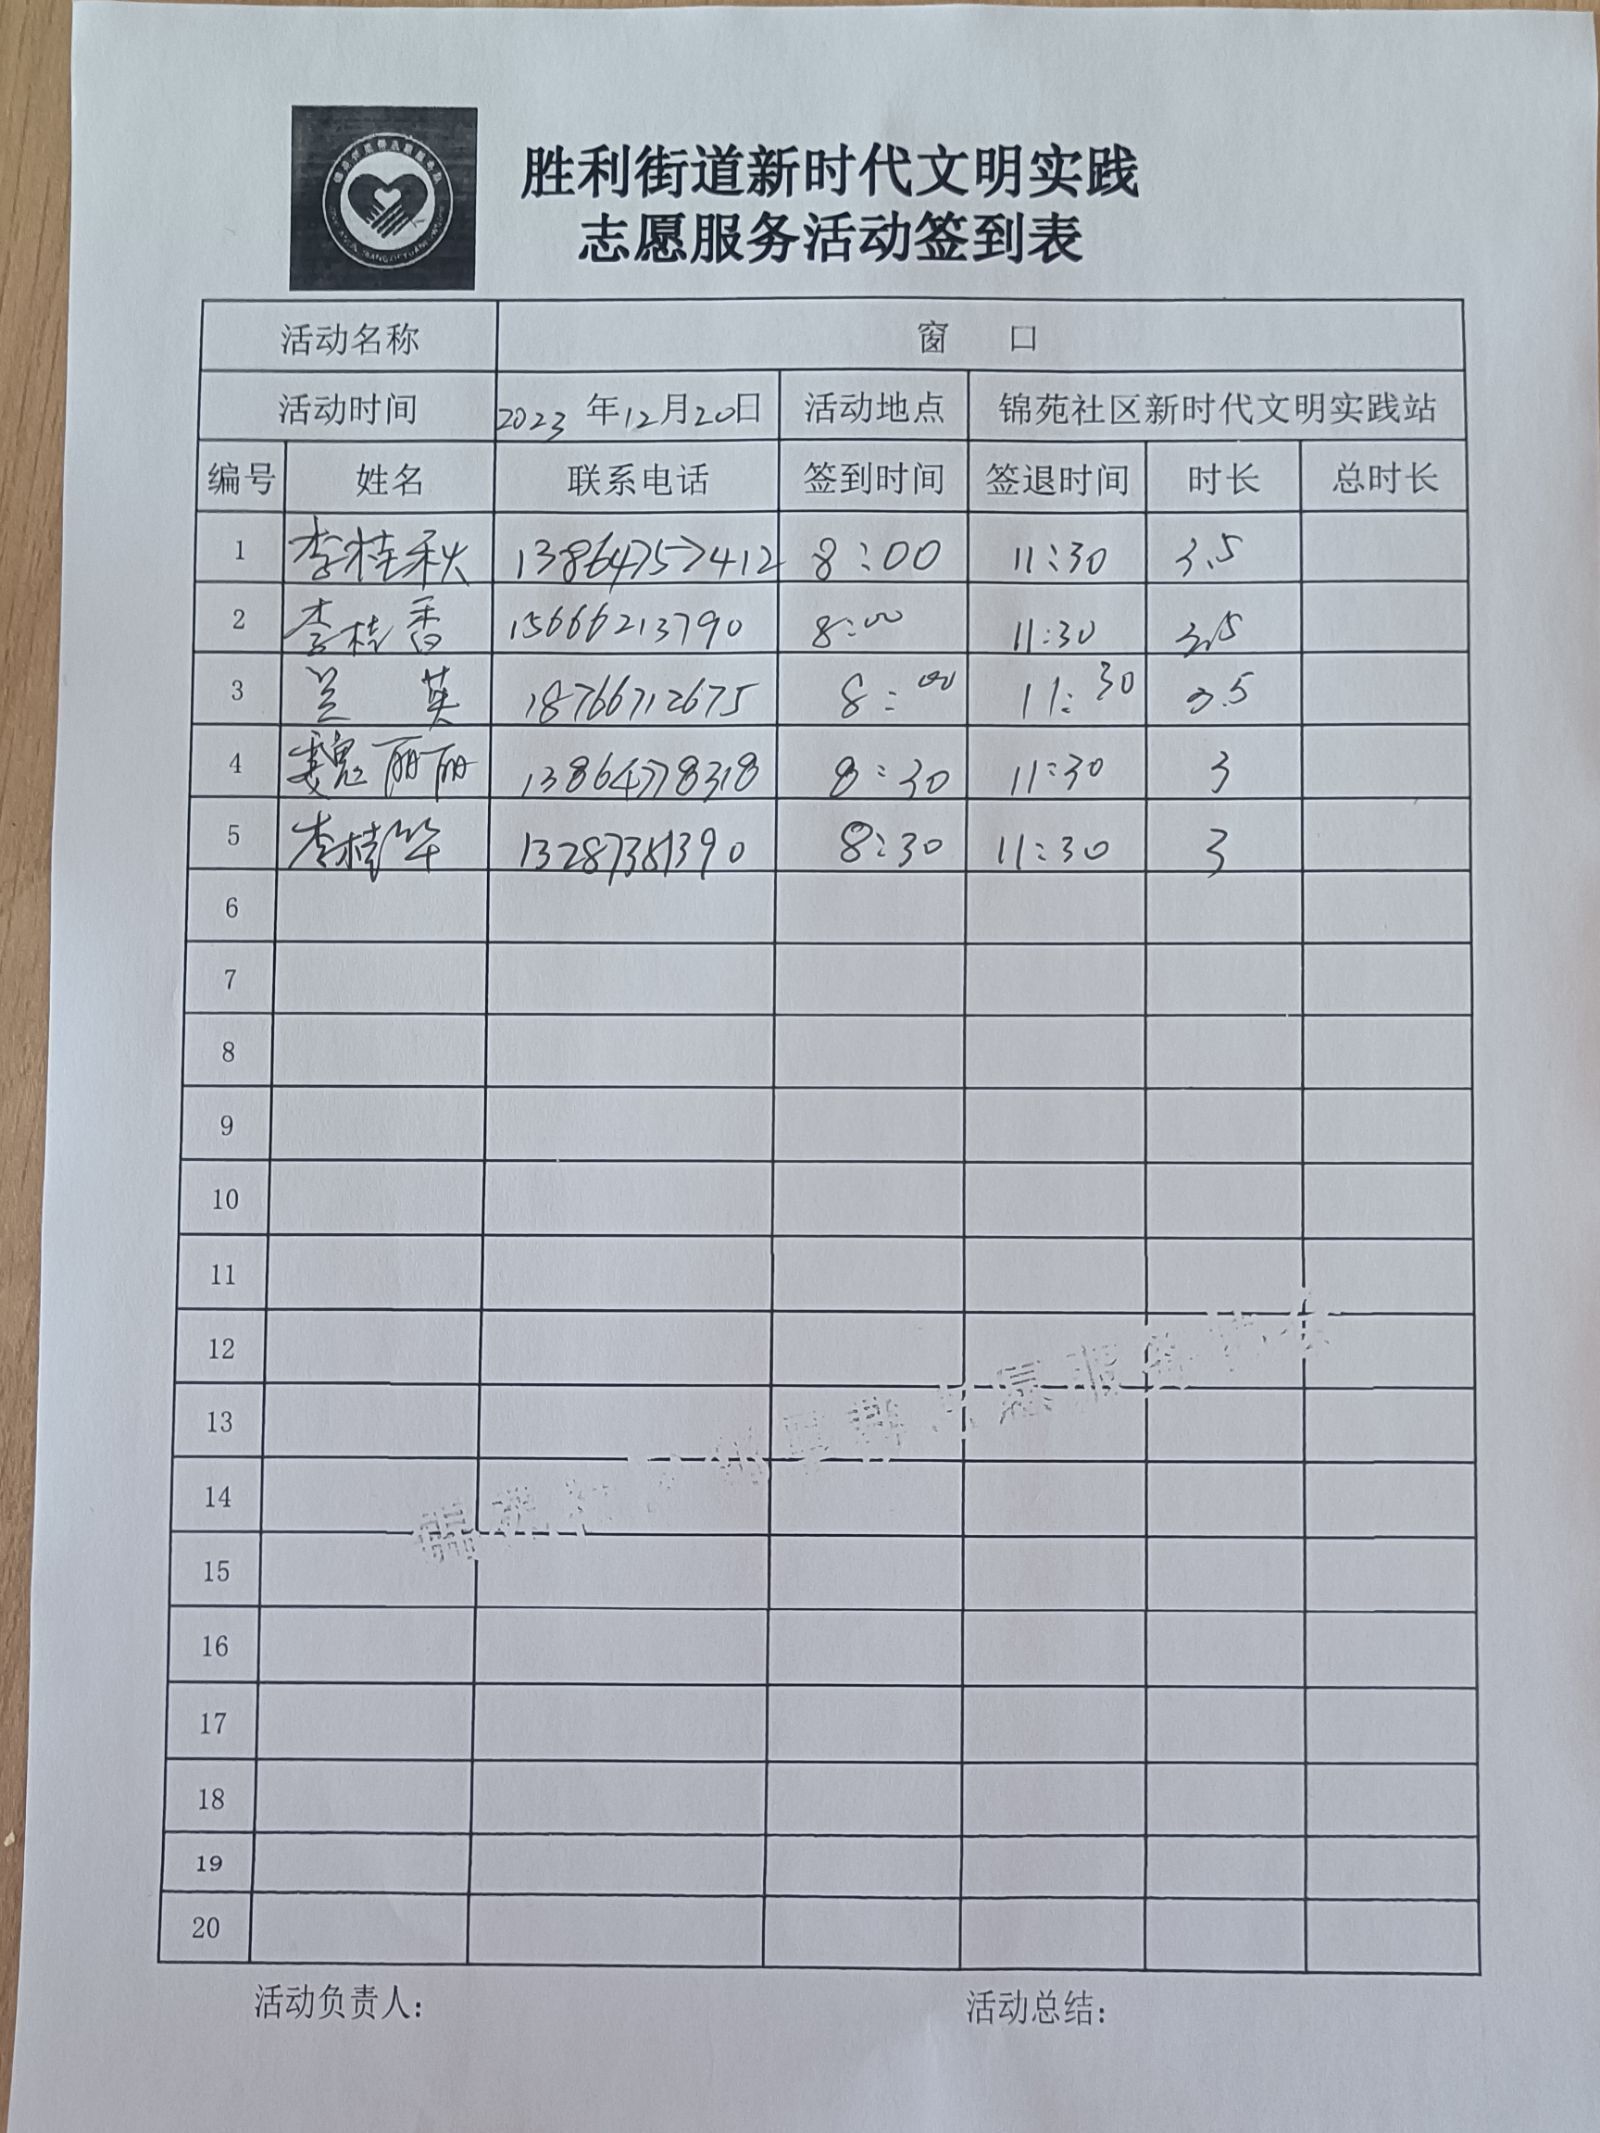 胜利街道新时代文明实践
志愿服务活动签到表
活动名称 窗 口
活动时间 2023 年12月20日 活动地点 锦苑社区新时代文明实践站
编号 姓名 联系电话 签到时间 签退时间 时长 总时长
1 李桂秋 13864757412 8:00 11:30 3.5
2 李桂香 15666213790 8:00 11:30 3.5
3 兰 英 18766712675 8:00 11:30 3.5
4 魏丽丽 13864778318 8:30 11:30 3
5 李桂华 13287381390 8:30 11:30 3
6
7
8
9
10
11
12
13
14
15
16
17
18
19
20
活动负责人: 活动总结: